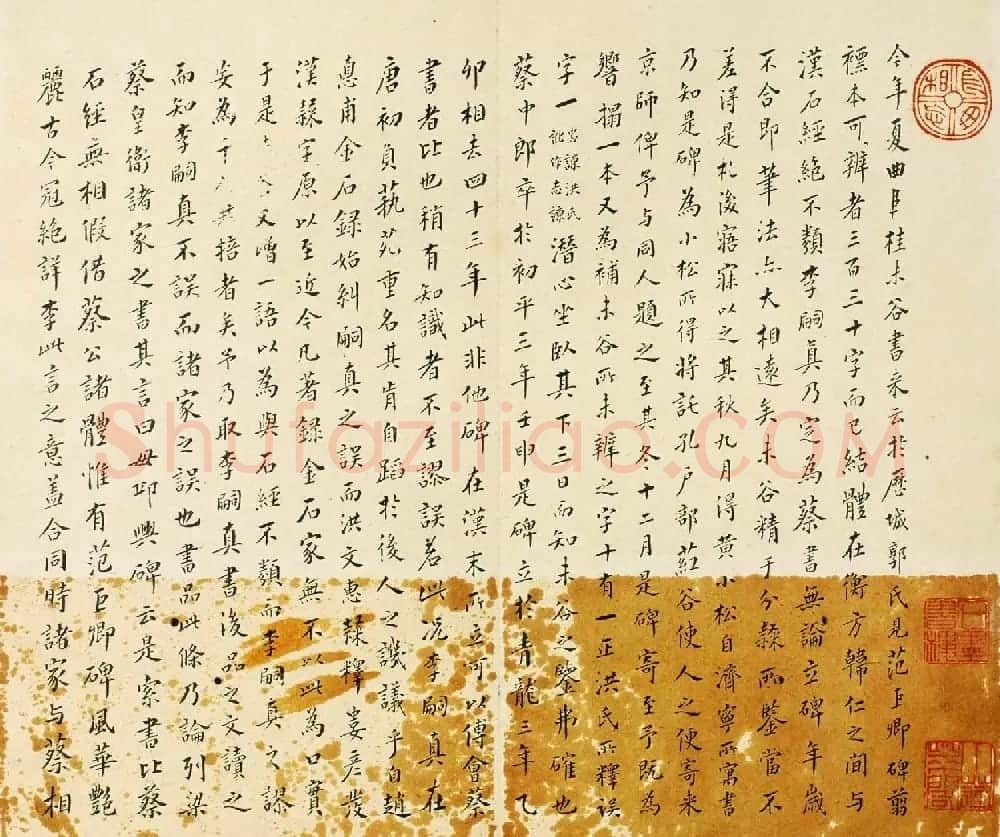 今年夏曲阜桂未谷書来云於歷城郭民見范巨卿碑翦
褾本可辨者三百三十字而已結體在衡方韓仁之間与
漢石經絕不類李嗣真乃定為蔡書無論立碑年歲
不合即筆法亦大相遠矣未谷精于分隸所鑒當不
差得是於後寤寐以之其秋九月得黃小松自濟寧所寓書
乃知是碑為小松所得將託孔戶部葒谷使人之便寄来
京師俾予与同人題之至其冬十二月是碑寄至予既為
響搨一本又為補未谷所未辨之字十有一正洪氏所釋誤
字一 宮諒洪氏訛作志諒 潛心坐臥其下三日而知未谷之鑒弗確也
蔡中郎卒於初平三年壬申是碑立於青龍三年乙
卯相去四十三年此非他碑在漢末所立可以傅會蔡
書者比也稍有知識者不至謬誤若此況李嗣真在
唐初負蓺苑重名其肯自蹈於後人之譏議乎自趙
悳甫金石録始糾嗣真之誤而洪文惠隸釋婁彥發
漢隸字原以至近今凡著録金石家無不以此為口實
于是 又增一語以為與石經不類而李嗣真之謬
妄為 共掊者矣予乃取李嗣真書後品之文讀之
而知李嗣真不誤而諸家之誤也書品此條乃論列梁
蔡皇衛諸家之書其言曰毌邱興碑云是索書比蔡
石經無相假借蔡公諸體惟有范巨卿碑風華艷
麗古今冠絕詳李此言之意蓋合同時諸家与蔡相
Shufaziliao.COM